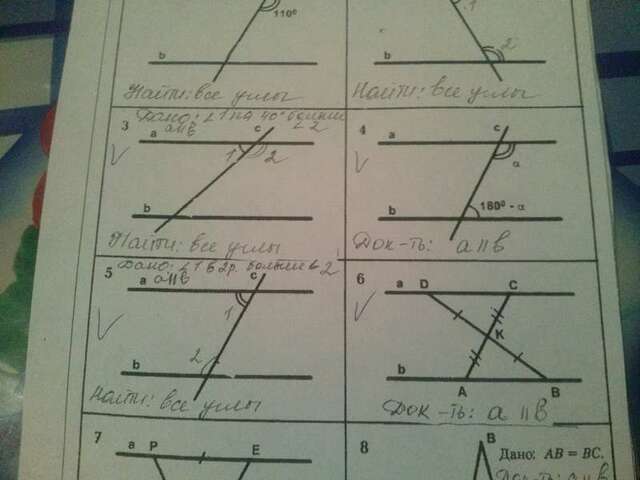 110°
b
Найти: все углы
1
2
b
Найти: все углы
3
Дано: ∠1 на 40° больше ∠2
a a||b c
1 2
b
Найти: все углы
4
a c
α
180° - α
b
Док-ть: a||b
5
Дано: ∠1 в 2р. больше ∠2
a a||b c
1
2
b
Найти: все углы
6
a D C
K
b
A B
Док-ть: a||b
7
a P E
8
B
Дано: AB = BC.
Док-ть: a||b